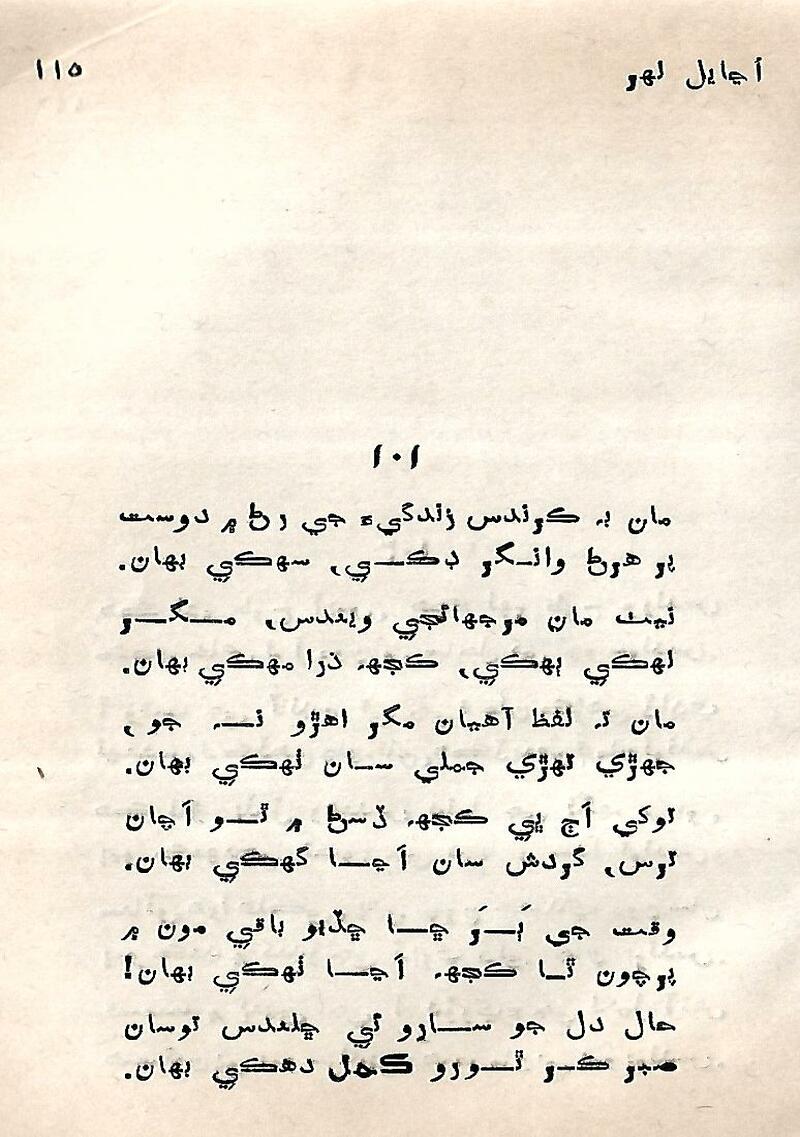 اڃايل لهر
١١٥
١٠١
مان به ڪرندس زندگيءَ جي رڻ ۾ دوست
پر هرڻ وانگر ڊڪي، سهڪي پهان.
نيٺ مان مرجهائجي ويندس، مگر
لهڪي ٻهڪي، ڪجهه ذرا مهڪي پهان.
مان ته لفظ آهيان مگر اهڙو نه جو،
جهڙي تهڙي جملي سان ٺهڪي پهان.
توکي اڄ ڀي ڪجهه ڏسڻ ۾ ٿو اَچان
ترس، گردش سان اَڃا گهڪي پهان.
وقت جي ٻَرَ ڇا ڇڏيو باقي مون ۾
پرچون ٿا ڪجهه اَڃا ٺهڪي پهان!
حال دل جو سارو ئي چلندس توسان
صبر ڪر ٿورو دهڪي پهان.